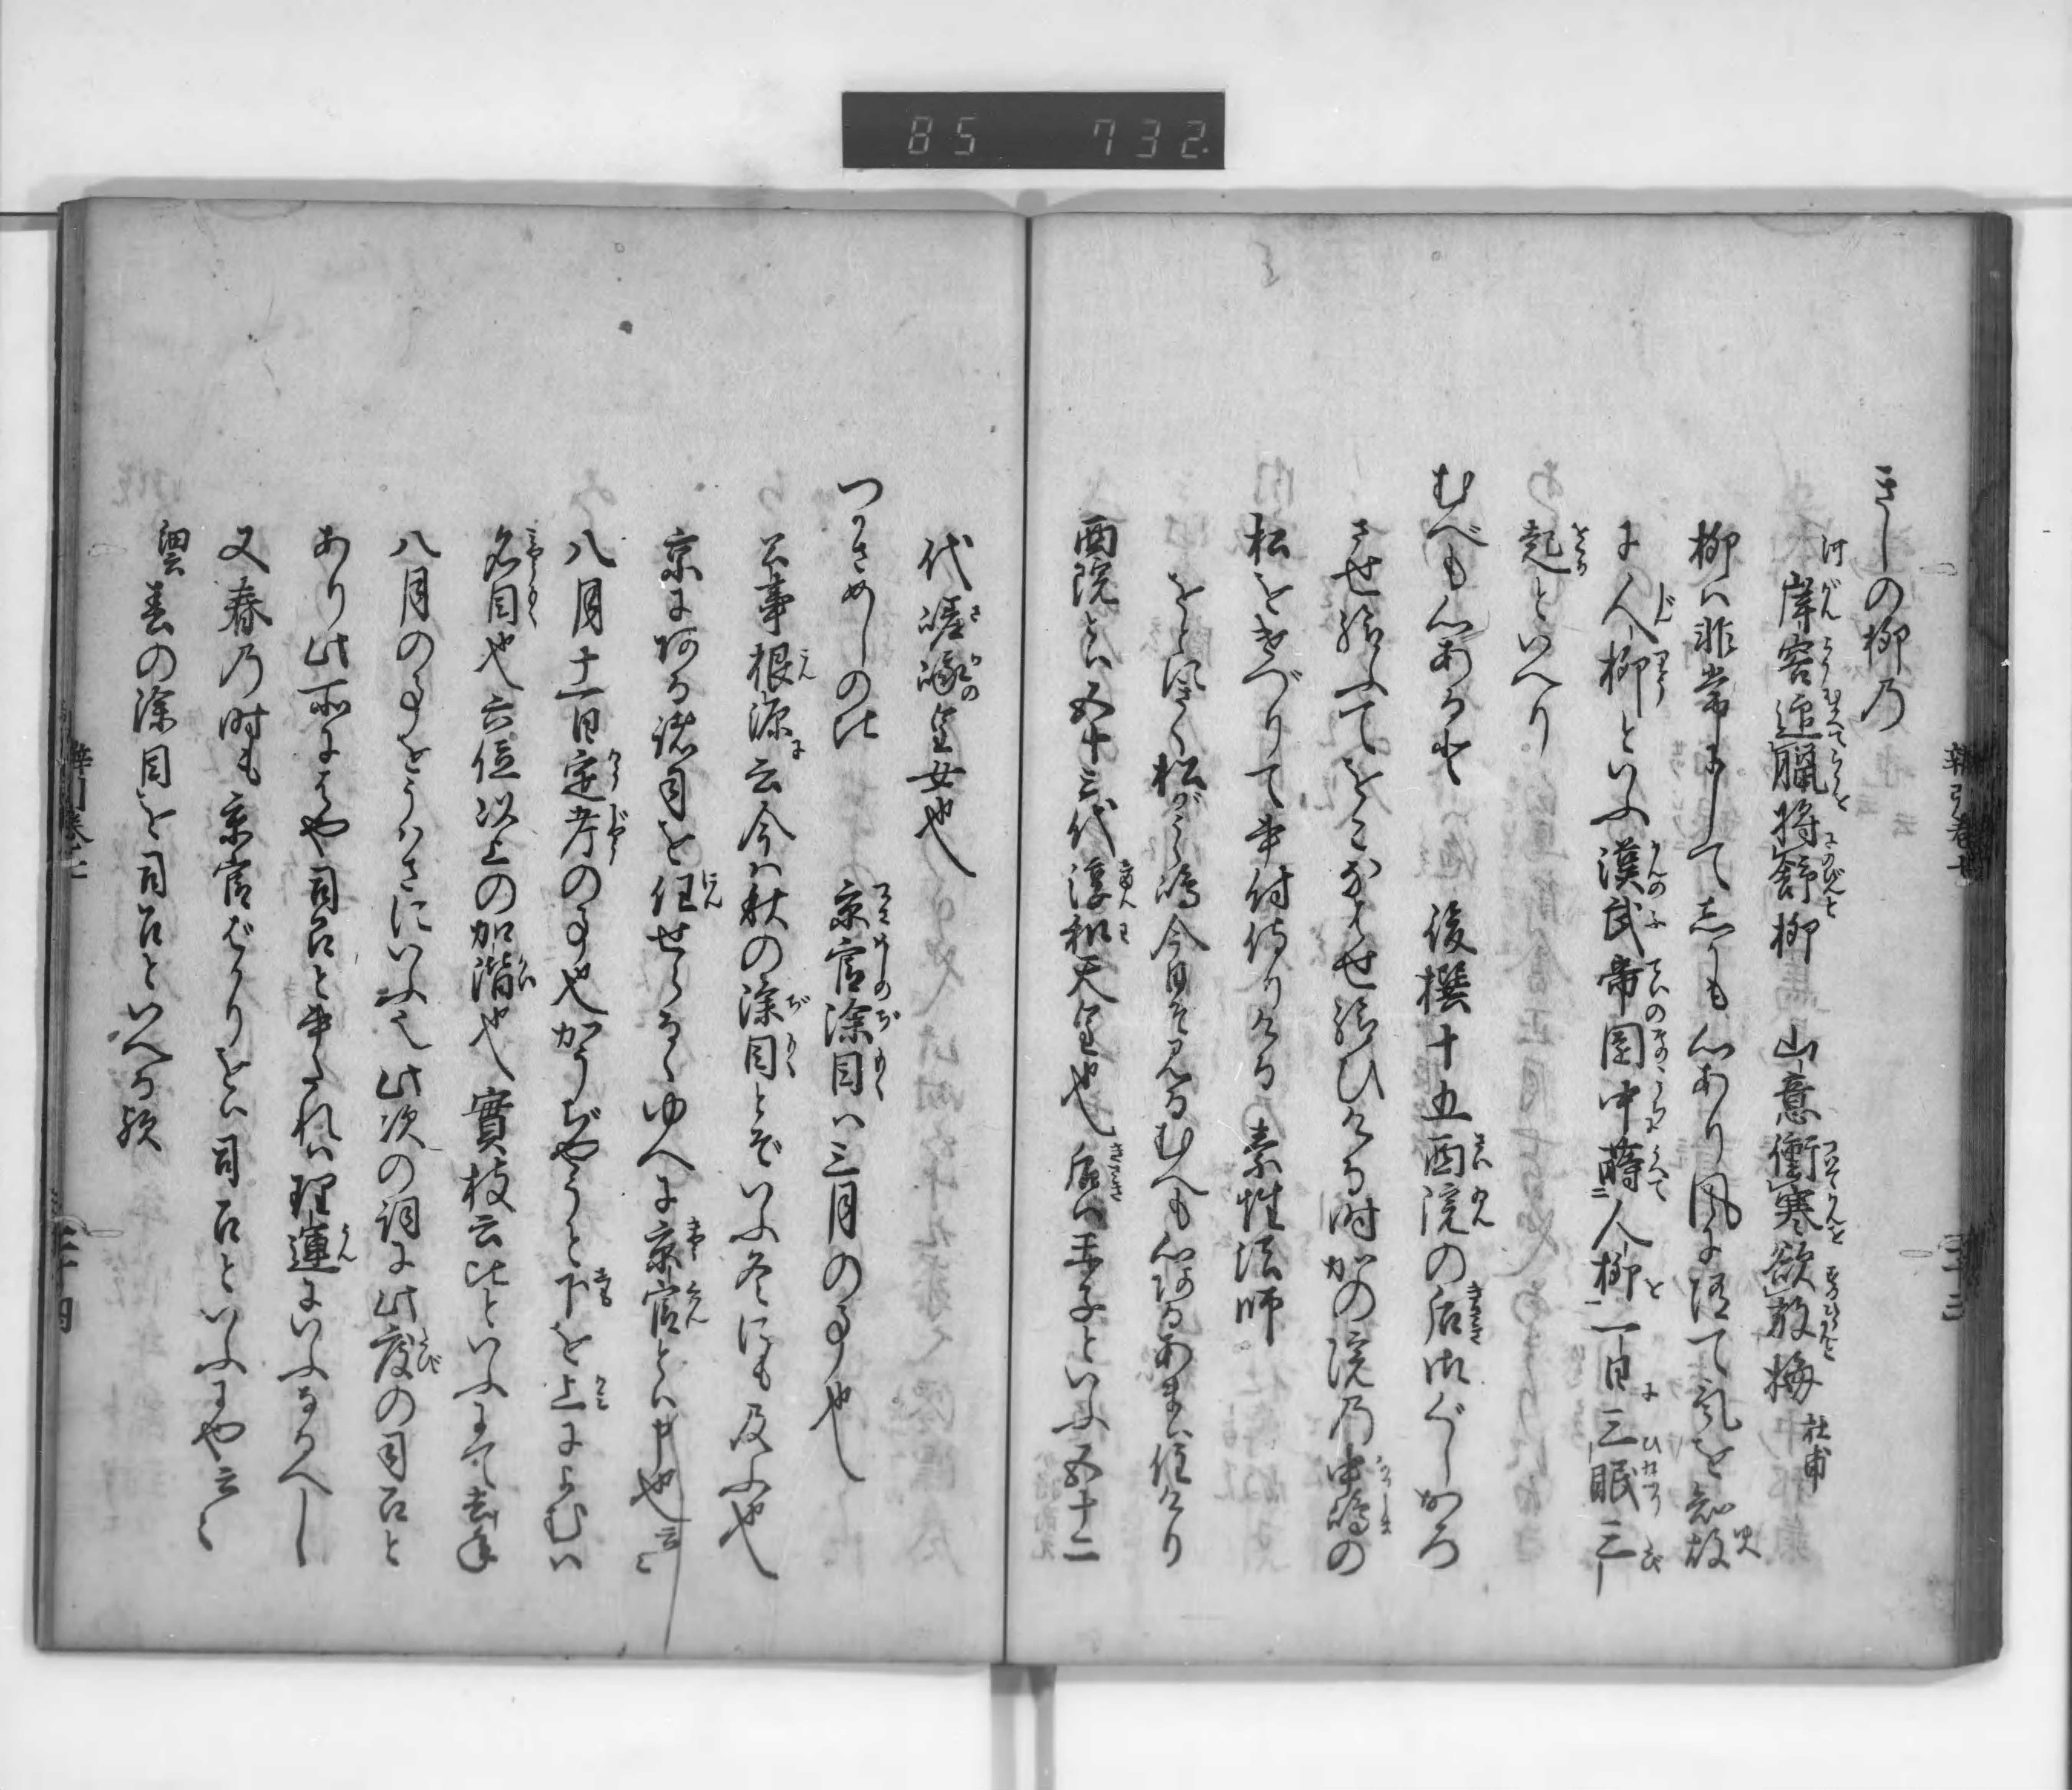 きしの柳乃
河 岸容追臘将舒柳 山意衝寒欲放梅 杜甫
柳ハ非常にして志も心あり風に随て気を知故
に人柳といふ漢武帝園中蒔人柳一日三眠三
起といへり
むべも心ある 後撰十五西院の后御ぐしおろ
させ給ふてをこなはせ給ひける時かの院乃中嶋の
松をけづりて書付侍りける 素性法師
をとにきく松がうら嶋今日ぞ見るむへも心あるあまハ住けり
西院とハ五十三代淳和天皇也后ハ正子といふ五十二
代嵯峨の皇女也
つかさめしの比 京官除目ハ三月の事也
公事根源に云今ハ秋の除目とぞいふ冬にも及ふ也
京にある諸司を任せらるゝゆへに京官とハ申也云々
八月十一日定考の事也かうぢやうと下を上によむハ
名目也六位以上の加階也實枝云比といふにて去年
八月の事をうハさにいふ也此次の詞に此度の司召と
あり此所にはや司召と書たれハ理運にいふなるへし
又春乃時も京官ばかりをハ司召といふにや云々
細云春の除目を司召といへる歟
85 732